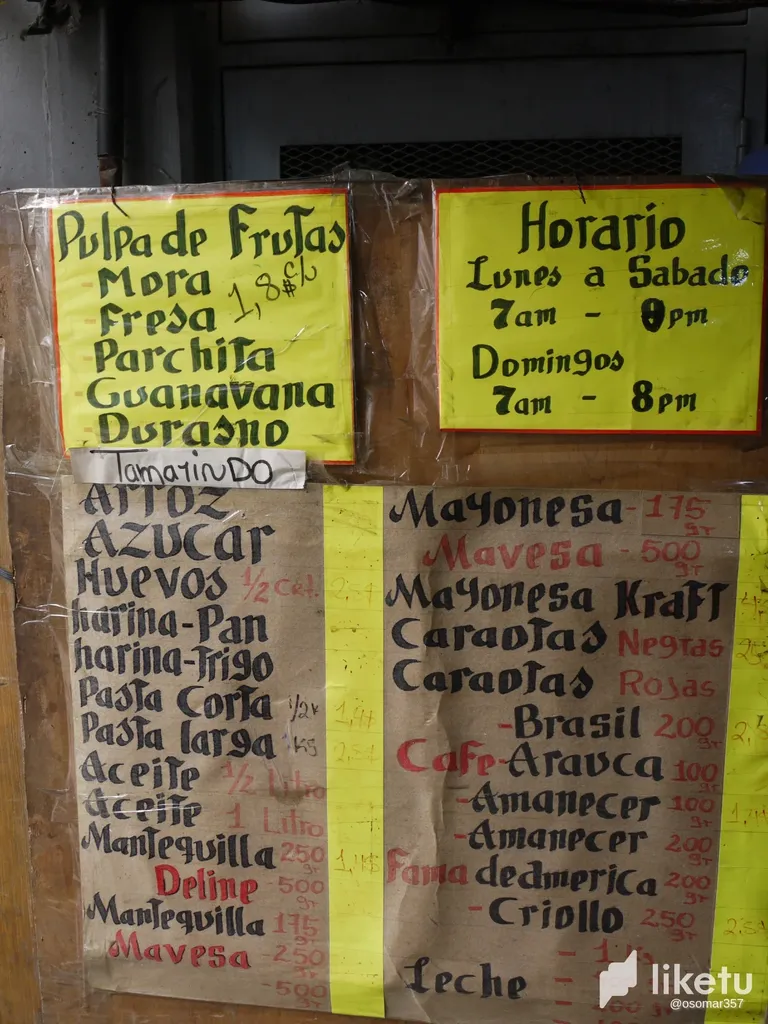 Pulpa de Frutas
- Mora
1,8$ c/u
- Fresa
- Parchita
- Guanavana
- Durasno
Tamarindo
Horario
Lunes a Sabado
7am - 9pm
Domingos
7am - 8pm
Arroz
Azucar
Huevos 1/2 Cat.
harina-Pan
harina-trigo
Pasta Corta 1/2K
Pasta larga KG
Aceite 1/2 Litro
Aceite 1 Litro
Mantequilla 250 gr
Deline - 500 gr
Mantequilla 175 gr
Mavesa - 250 gr
- 500 gr
Mayonesa - 175 gr
Mavesa - 500 gr
Mayonesa Kraft
Caraotas Negras
Caraotas Rojas
- Brasil 200 gr
Cafe - Arauca 100 gr
- Amanecer 100 gr
- Amanecer 200 gr
Fama deamerica 200 gr
- Criollo 250 gr
Leche -
liketu
@osomar357